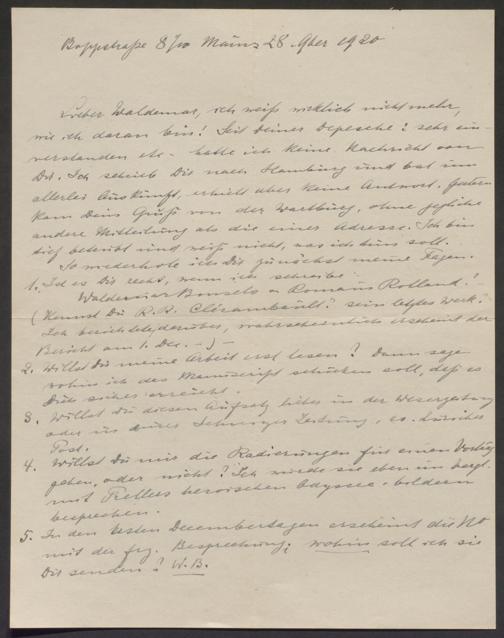 Boppstraße 8/10 Mainz 28 9ber 1920
Lieber Waldemar, ich weiß wirklich nicht mehr,
wie ich daran bin! Seit Deiner Depesche: sehr ein-
verstanden etc. hatte ich keine Nachricht von
Dir. Ich schrieb Dir nach Hamburg und bat um
allerlei Auskunft, erhielt aber keine Antwort. Gestern
kam Dein Gruß von der Wartburg, ohne jegliche
andere Mitteilung als die einer Adresse. Ich bin
tief betrübt und weiß nicht, was ich tun soll.
So wiederhole ich Dir zunächst meine Fragen.
1. Ist es Dir recht, wenn ich schreibe:
Waldemar Bonsels u Romain Rolland!
(Kennst Du R. R. Clérambault? sein letztes Werk.
Ich berichtete darüber, wahrscheinlich erscheint der
Bericht am 1. Dez. -) -
2. Willst Du meine Arbeit erst lesen? Dann sage
wohin ich das Manuscript schicken soll, daß es
Dich sicher erreicht.
3. Willst Du diesen Aufsatz lieber in der Weserzeitung
oder in einer Schweizer Zeitung, ev. Zürcher
Post.
4. Willst Du mir die Radierungen für einen Vortrag
geben, oder nicht? Ich würde sie eben im Vergl.
mit Prellers heroischen Odyssee-bildern
besprechen.
5. In den ersten Decembertagen erscheint die No
mit der frz. Besprechung; wohin soll ich sie
Dir senden? W. B.